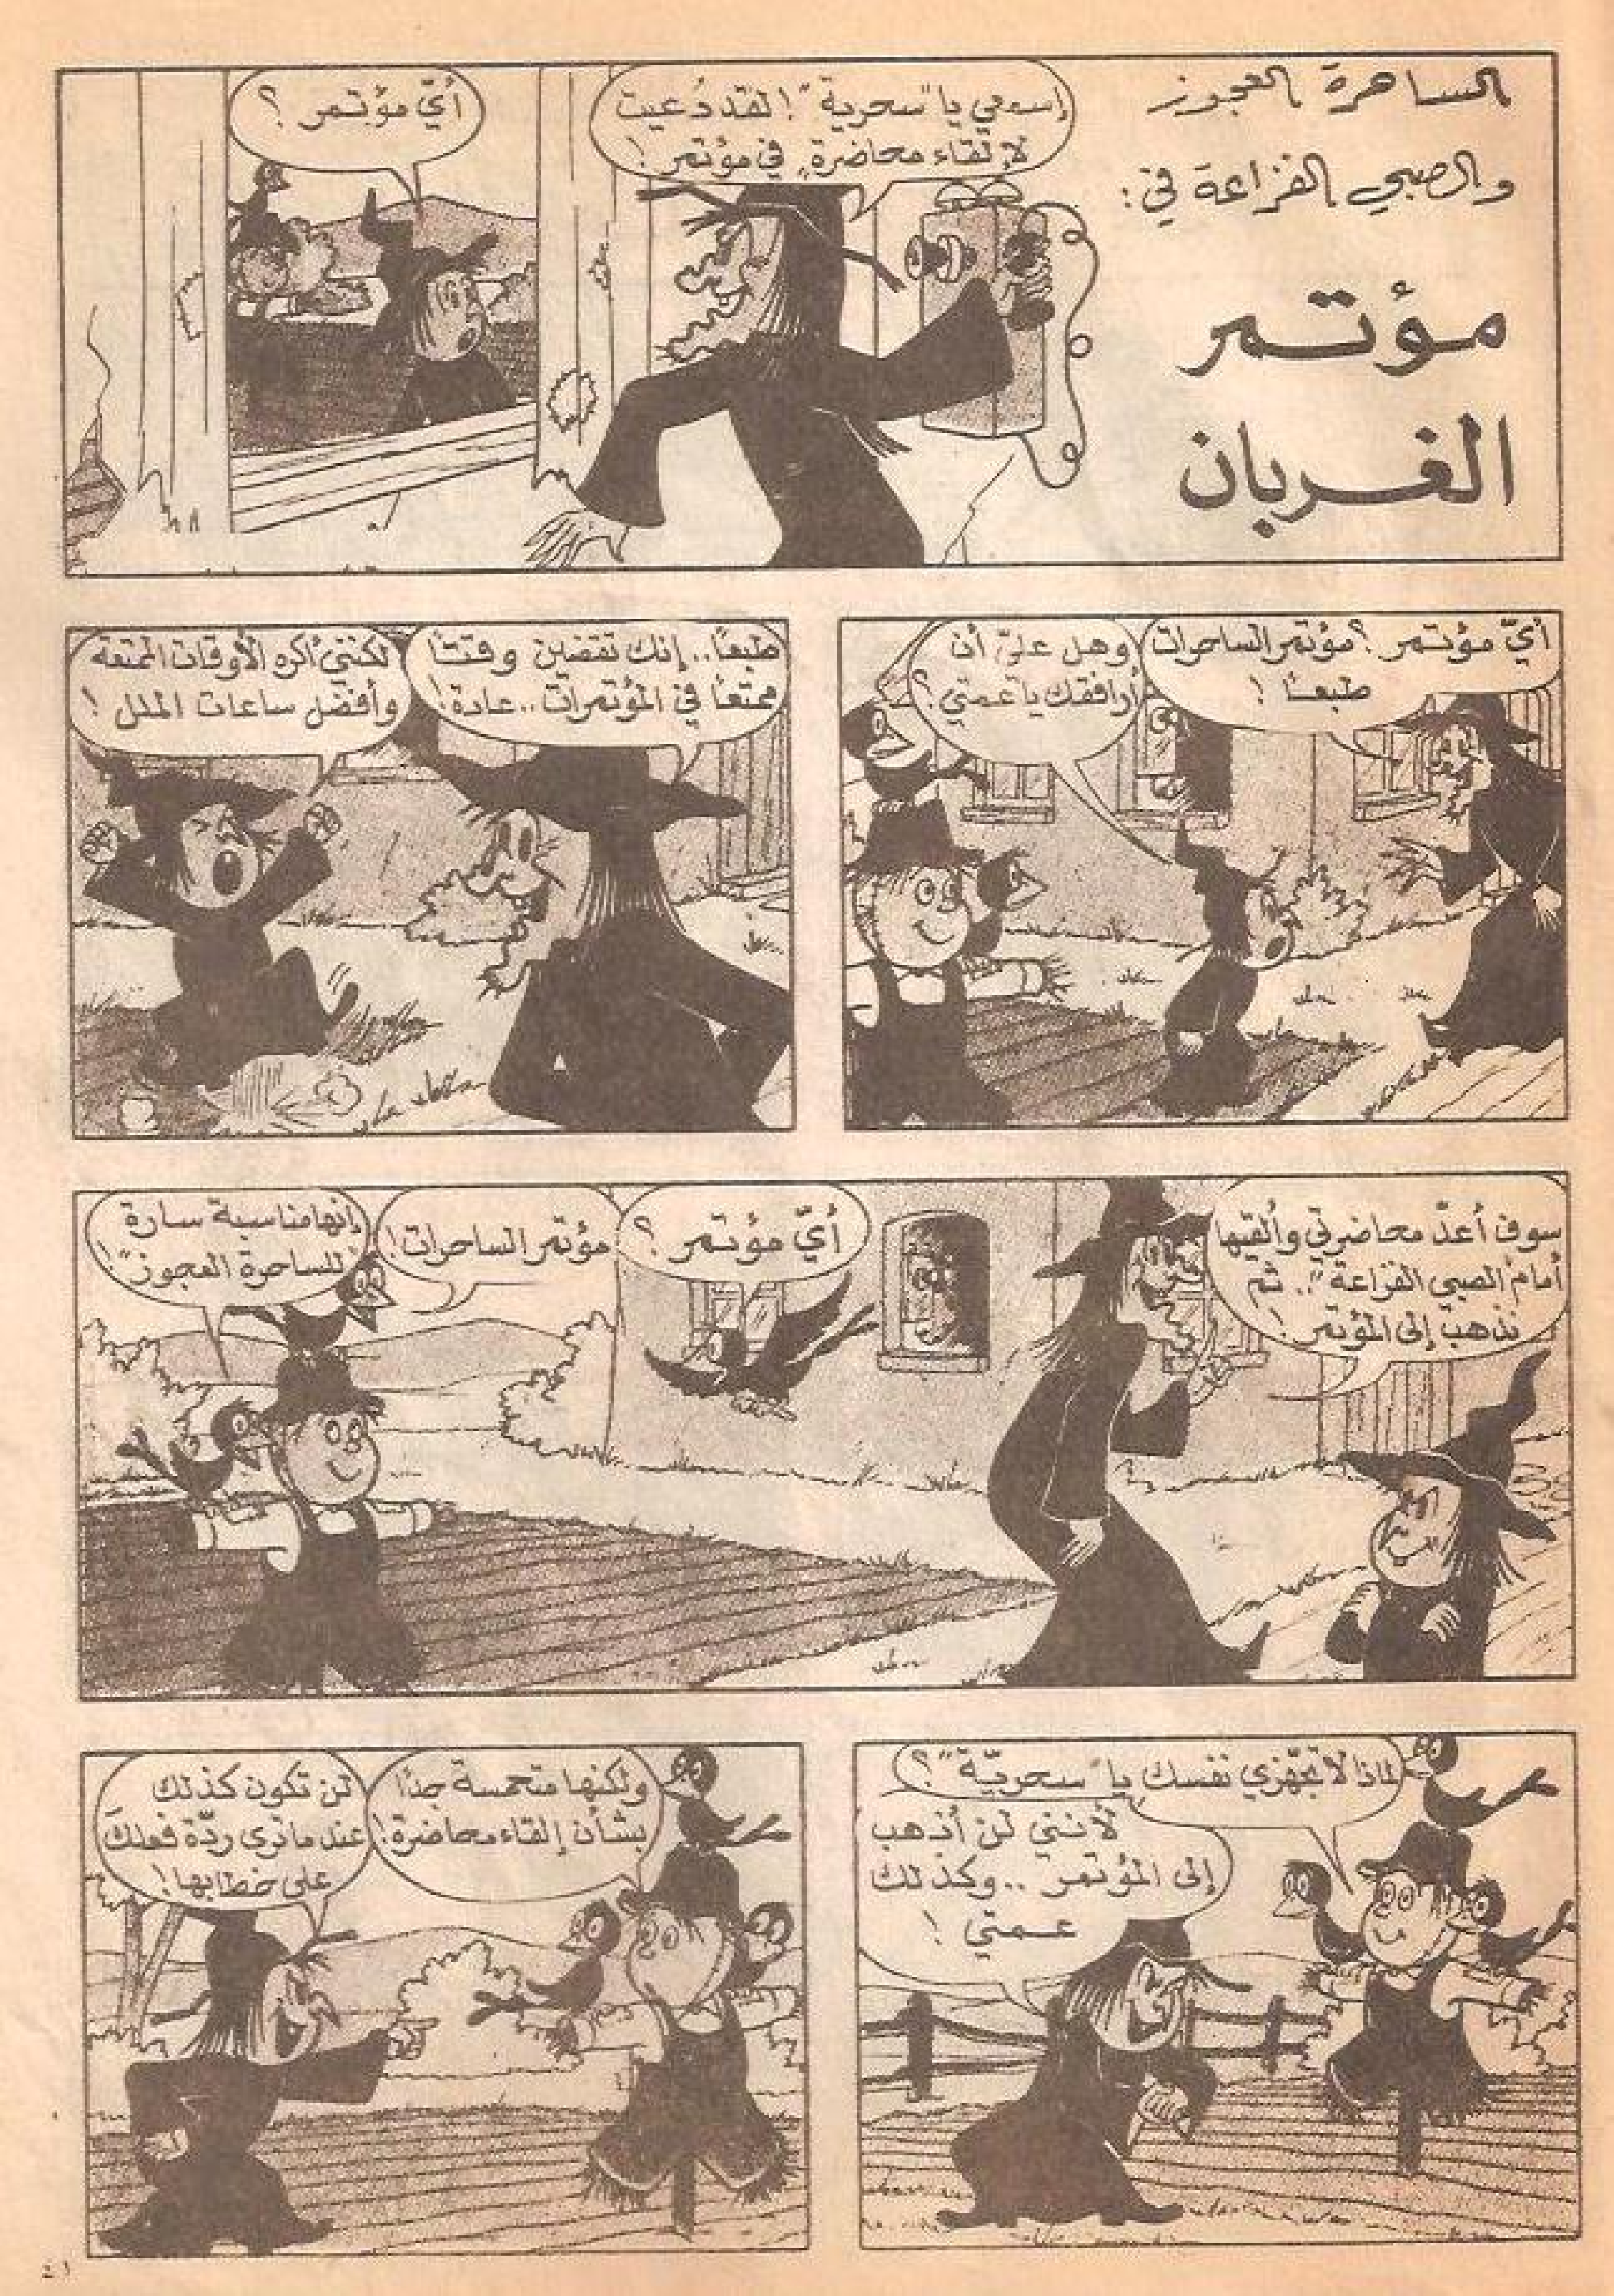 الساحرة العجوز
والصبي الفزاعة في:
مؤتمر
الغربان
إسمعي يا "سحرية"! لقد دُعيت
لإلقاء محاضرةٍ في مؤتمر!
أيّ مؤتمر؟
أيّ مؤتمر؟ مؤتمر الساحرات
طبعاً!
وهل عليّ أن
أرافقك يا عمتي؟
طبعاً.. إنك تقضين وقتاً
ممتعاً في المؤتمرات.. عادة!
لكنني أكره الأوقات الممتعة
وأفضل ساعات الملل!
سوف أعدّ محاضرتي وألقيها
أمام الصبي الفزاعة".. ثم
نذهب إلى المؤتمر!
أيّ مؤتمر؟
مؤتمر الساحرات!
إنها مناسبة سارة
للساحرة العجوز"!
لماذا لا تجهّزي نفسك يا "سحريّة"؟
لأنني لن أذهب
إلى المؤتمر.. وكذلك
عمتي!
ولكنها متحمسة جداً
بشأن إلقاء محاضرة!
لن تكون كذلك
عندما ترى ردّة فعلك
على خطابها!